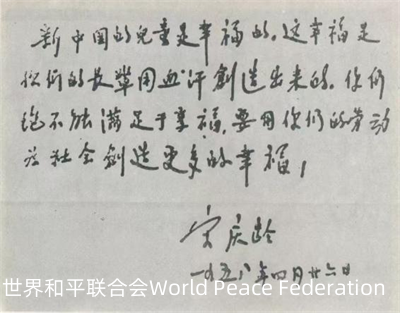 新中国的兒童是幸福的。这幸福是
你们的長輩用血汗創造出来的。你们
绝不能满足于享福，要用你们的劳动
为社会創造更多的幸福！
宋庆龄
一九五八年四月廿六日
世界和平联合会World Peace Federation